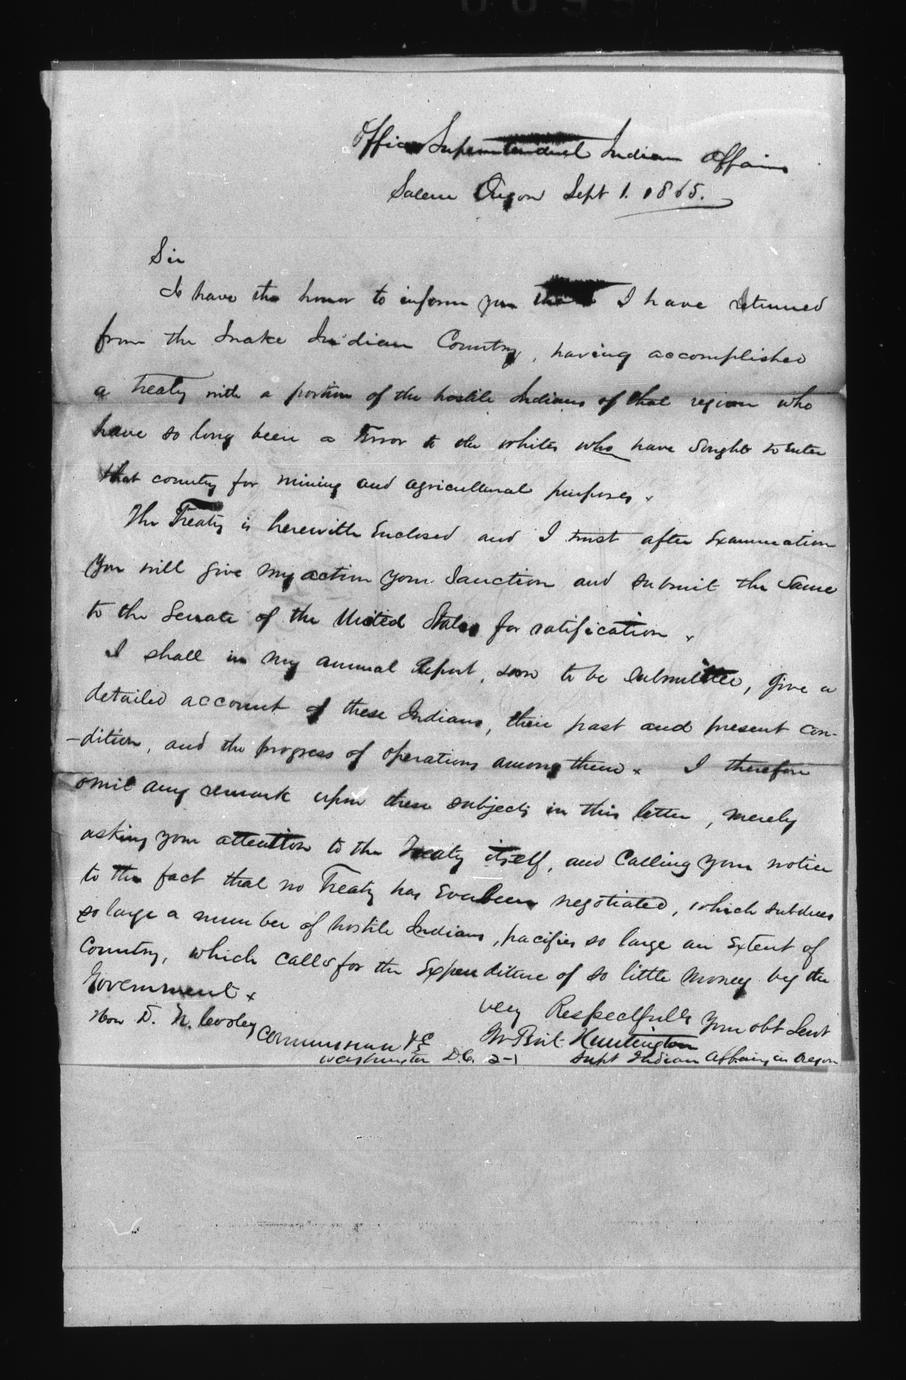 Office Superintendent Indian Affairs
Salem Oregon Sept 1. 1865.
Sir
I have the honor to inform you that I have returned
from the Snake Indian Country, having accomplished
a treaty with a portion of the hostile Indians of that region who
have so long been a terror to the whites who have sought to enter
that country for mining and agricultural purposes.
The Treaty is herewith Enclosed and I trust after Examination
You will give my action your Sanction and submit the Same
to the Senate of the United States for ratification.
I shall in my annual Report, soon to be submitted, give a
detailed account of these Indians, their past and present con-
-dition, and the progress of operations among them. I therefore
omit any remark upon these subjects in this letter, merely
asking your attention to the Treaty itself, and Calling your notice
to the fact that no Treaty has Ever been negotiated, which subdues
so large a number of hostile Indians, pacifies so large an Extent of
Country, which calls for the Expenditure of so little money by the
Government.
Very Respectfully Your obt Servt
Hon D. N. Cooley
Commissioner &c
Washington D.C. 2-1
J W Perit Huntington
Supt Indian Affairs in Oregon